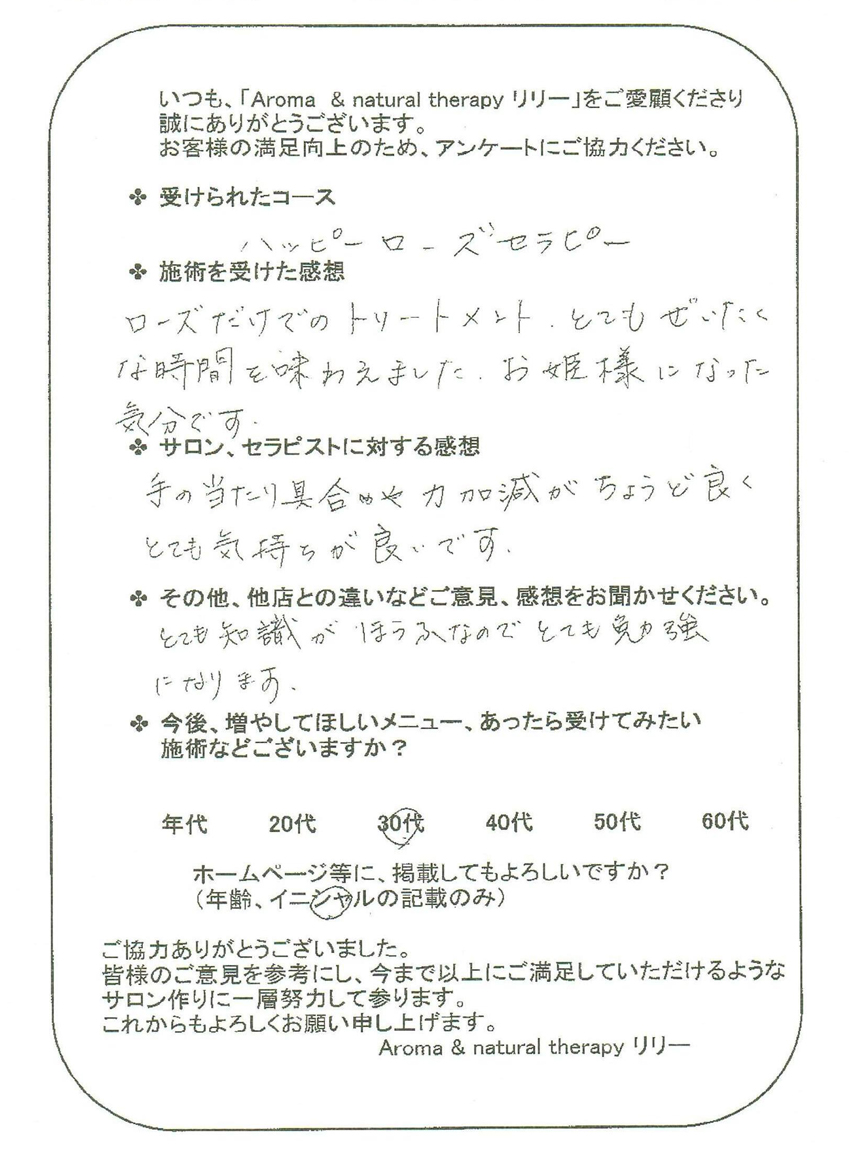 いつも、「Aroma & natural therapy リリー」をご愛顧くださり
誠にありがとうございます。
お客様の満足向上のため、アンケートにご協力ください。
❖ 受けられたコース
ハッピーローズセラピー
❖ 施術を受けた感想
ローズだけでのトリートメント、とてもぜいたく
な時間を味わえました。お姫様になった
気分です。
❖ サロン、セラピストに対する感想
手の当たり具合や力加減がちょうど良く
とても気持ちが良いです。
❖ その他、他店との違いなどご意見、感想をお聞かせください。
とても知識がほうふなのでとても勉強
になります。
❖ 今後、増やしてほしいメニュー、あったら受けてみたい
施術などございますか？
年代 20代 30代 40代 50代 60代
ホームページ等に、掲載してもよろしいですか？
（年齢、イニシャルの記載のみ）
ご協力ありがとうございました。
皆様のご意見を参考にし、今まで以上にご満足していただけるような
サロン作りに一層努力して参ります。
これからもよろしくお願い申し上げます。
Aroma & natural therapy リリー